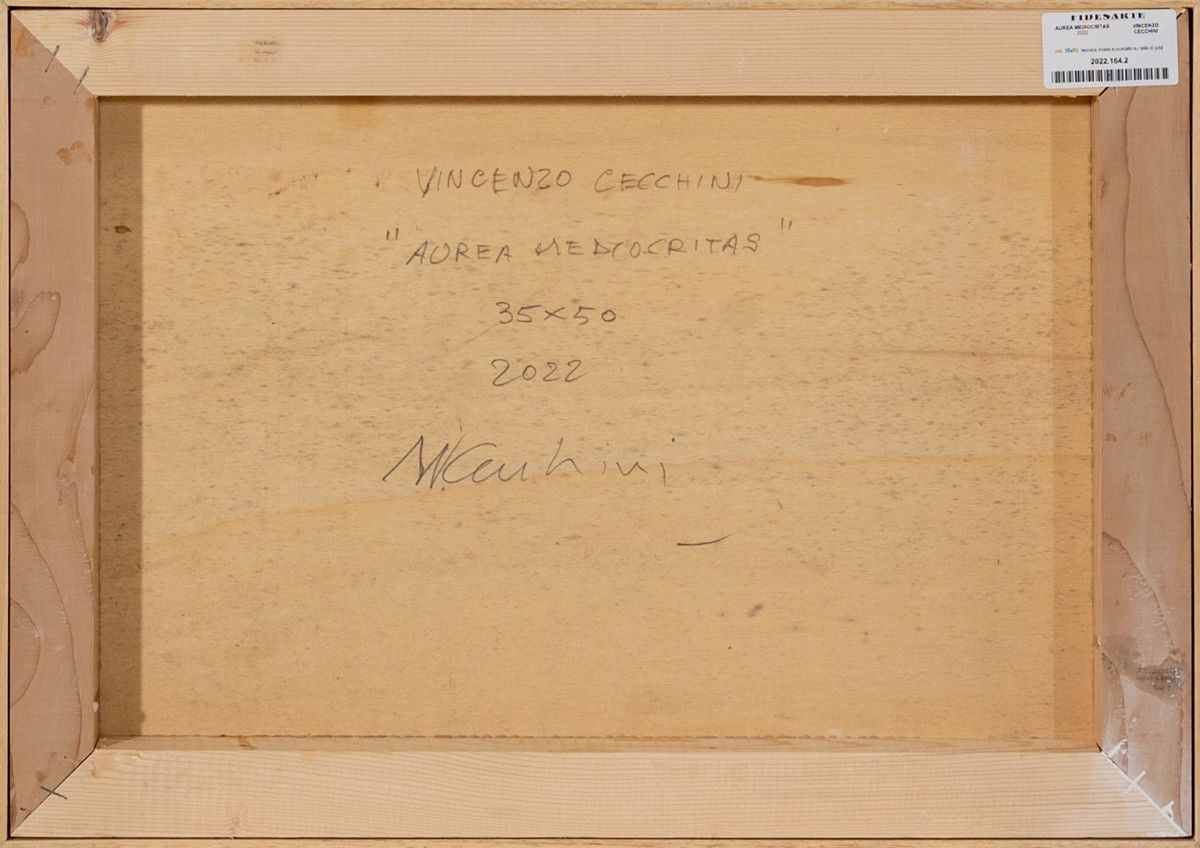 FIDESARTE
AUREA MEDIOCRITAS VINCENZO
2022 CECCHINI
cm. 35x50 tecnica mista e acrilico su tela di juta
2022.164.2
VINCENZO CECCHINI
"AUREA MEDIOCRITAS"
35x50
2022
VCecchini